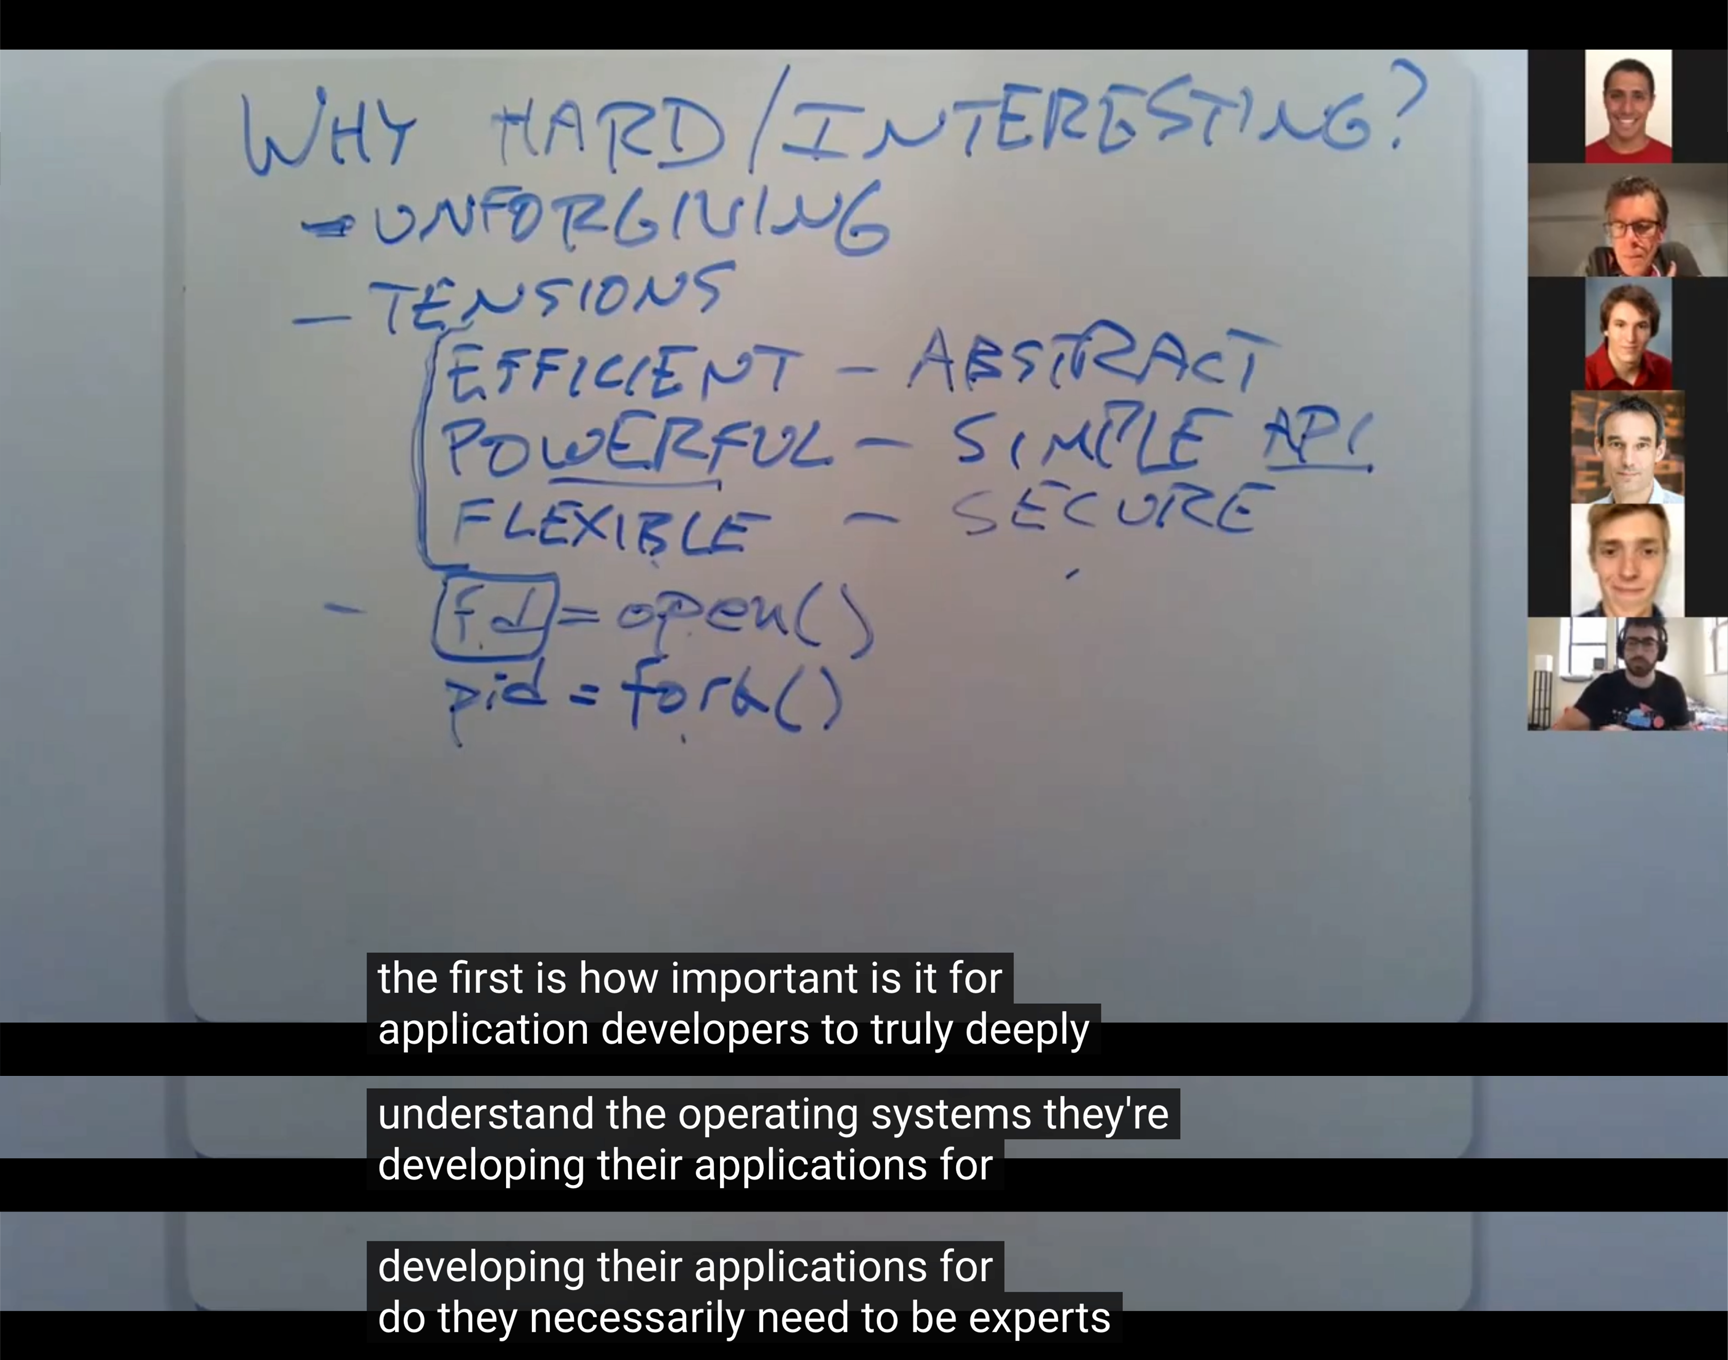 WHY HARD/INTERESTING?
- UNFORGIVING
- TENSIONS
EFFICIENT - ABSTRACT
POWERFUL - SIMPLE API
FLEXIBLE - SECURE
- fd = open()
pid = fork()
the first is how important is it for
application developers to truly deeply
understand the operating systems they're
developing their applications for
developing their applications for
do they necessarily need to be experts